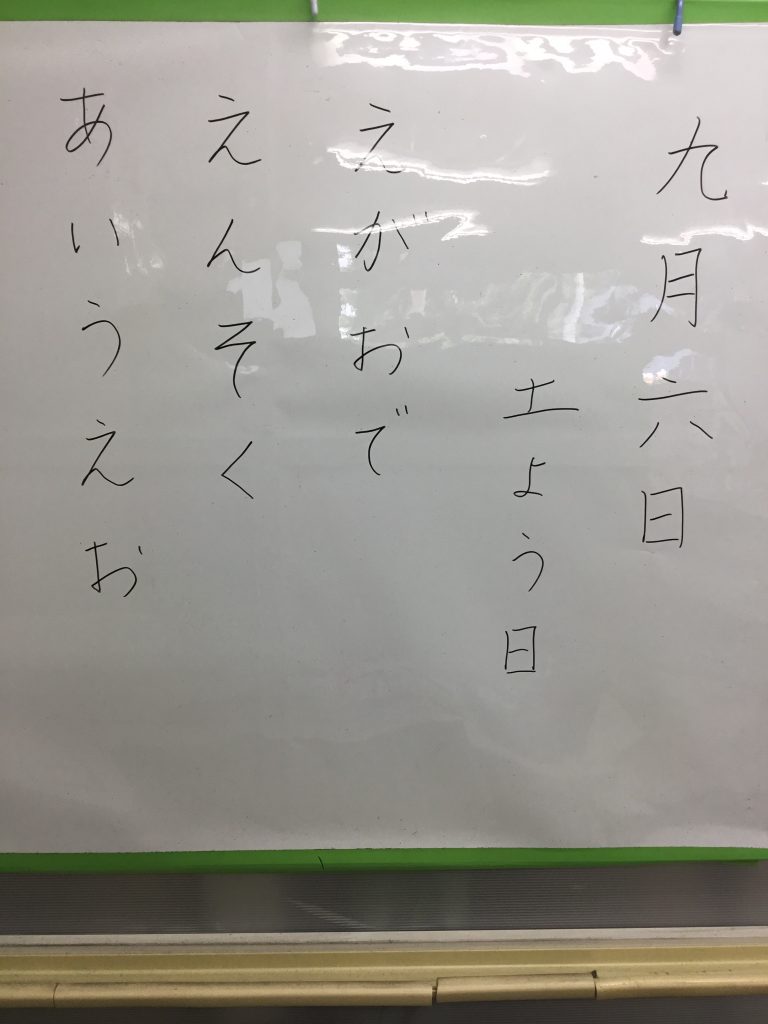 九月六日
土よう日
えがおで
えんそく
あいうえお